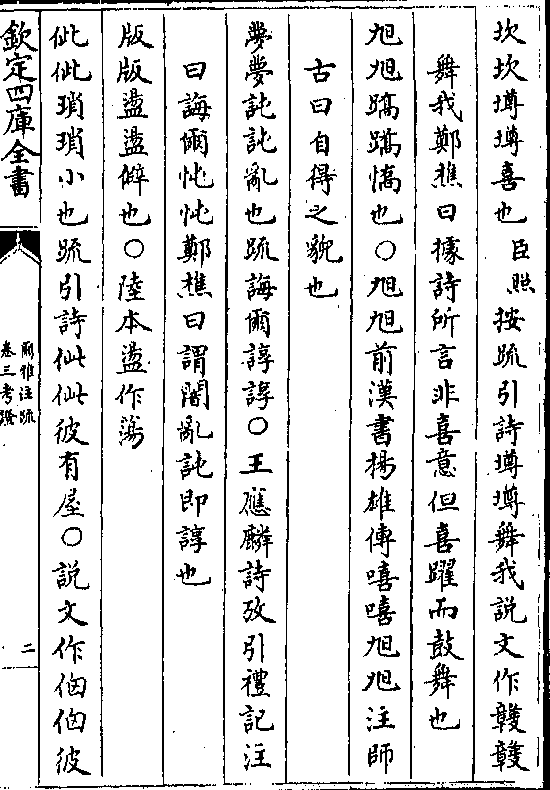 坎坎墫墫喜也臣照按疏引詩墫墫舞我說文作竷竷
舞我鄭樵曰據詩所言非喜意但喜躍而鼓舞也
旭旭蹻蹻憍也○旭旭前漢書揚雄傳嘻嘻旭旭注師
古曰自得之貌也
夢夢訰訰亂也疏誨爾諄諄○王應麟詩攷引禮記注
曰誨爾忳忳鄭樵曰謂闇亂訰即諄也
版版盪盪僻也○陸本盪作蕩
佌佌瑣瑣小也疏引詩佌佌彼有屋○說文作㑋㑋彼
欽定四庫全書
爾雅注疏
卷三考證
二